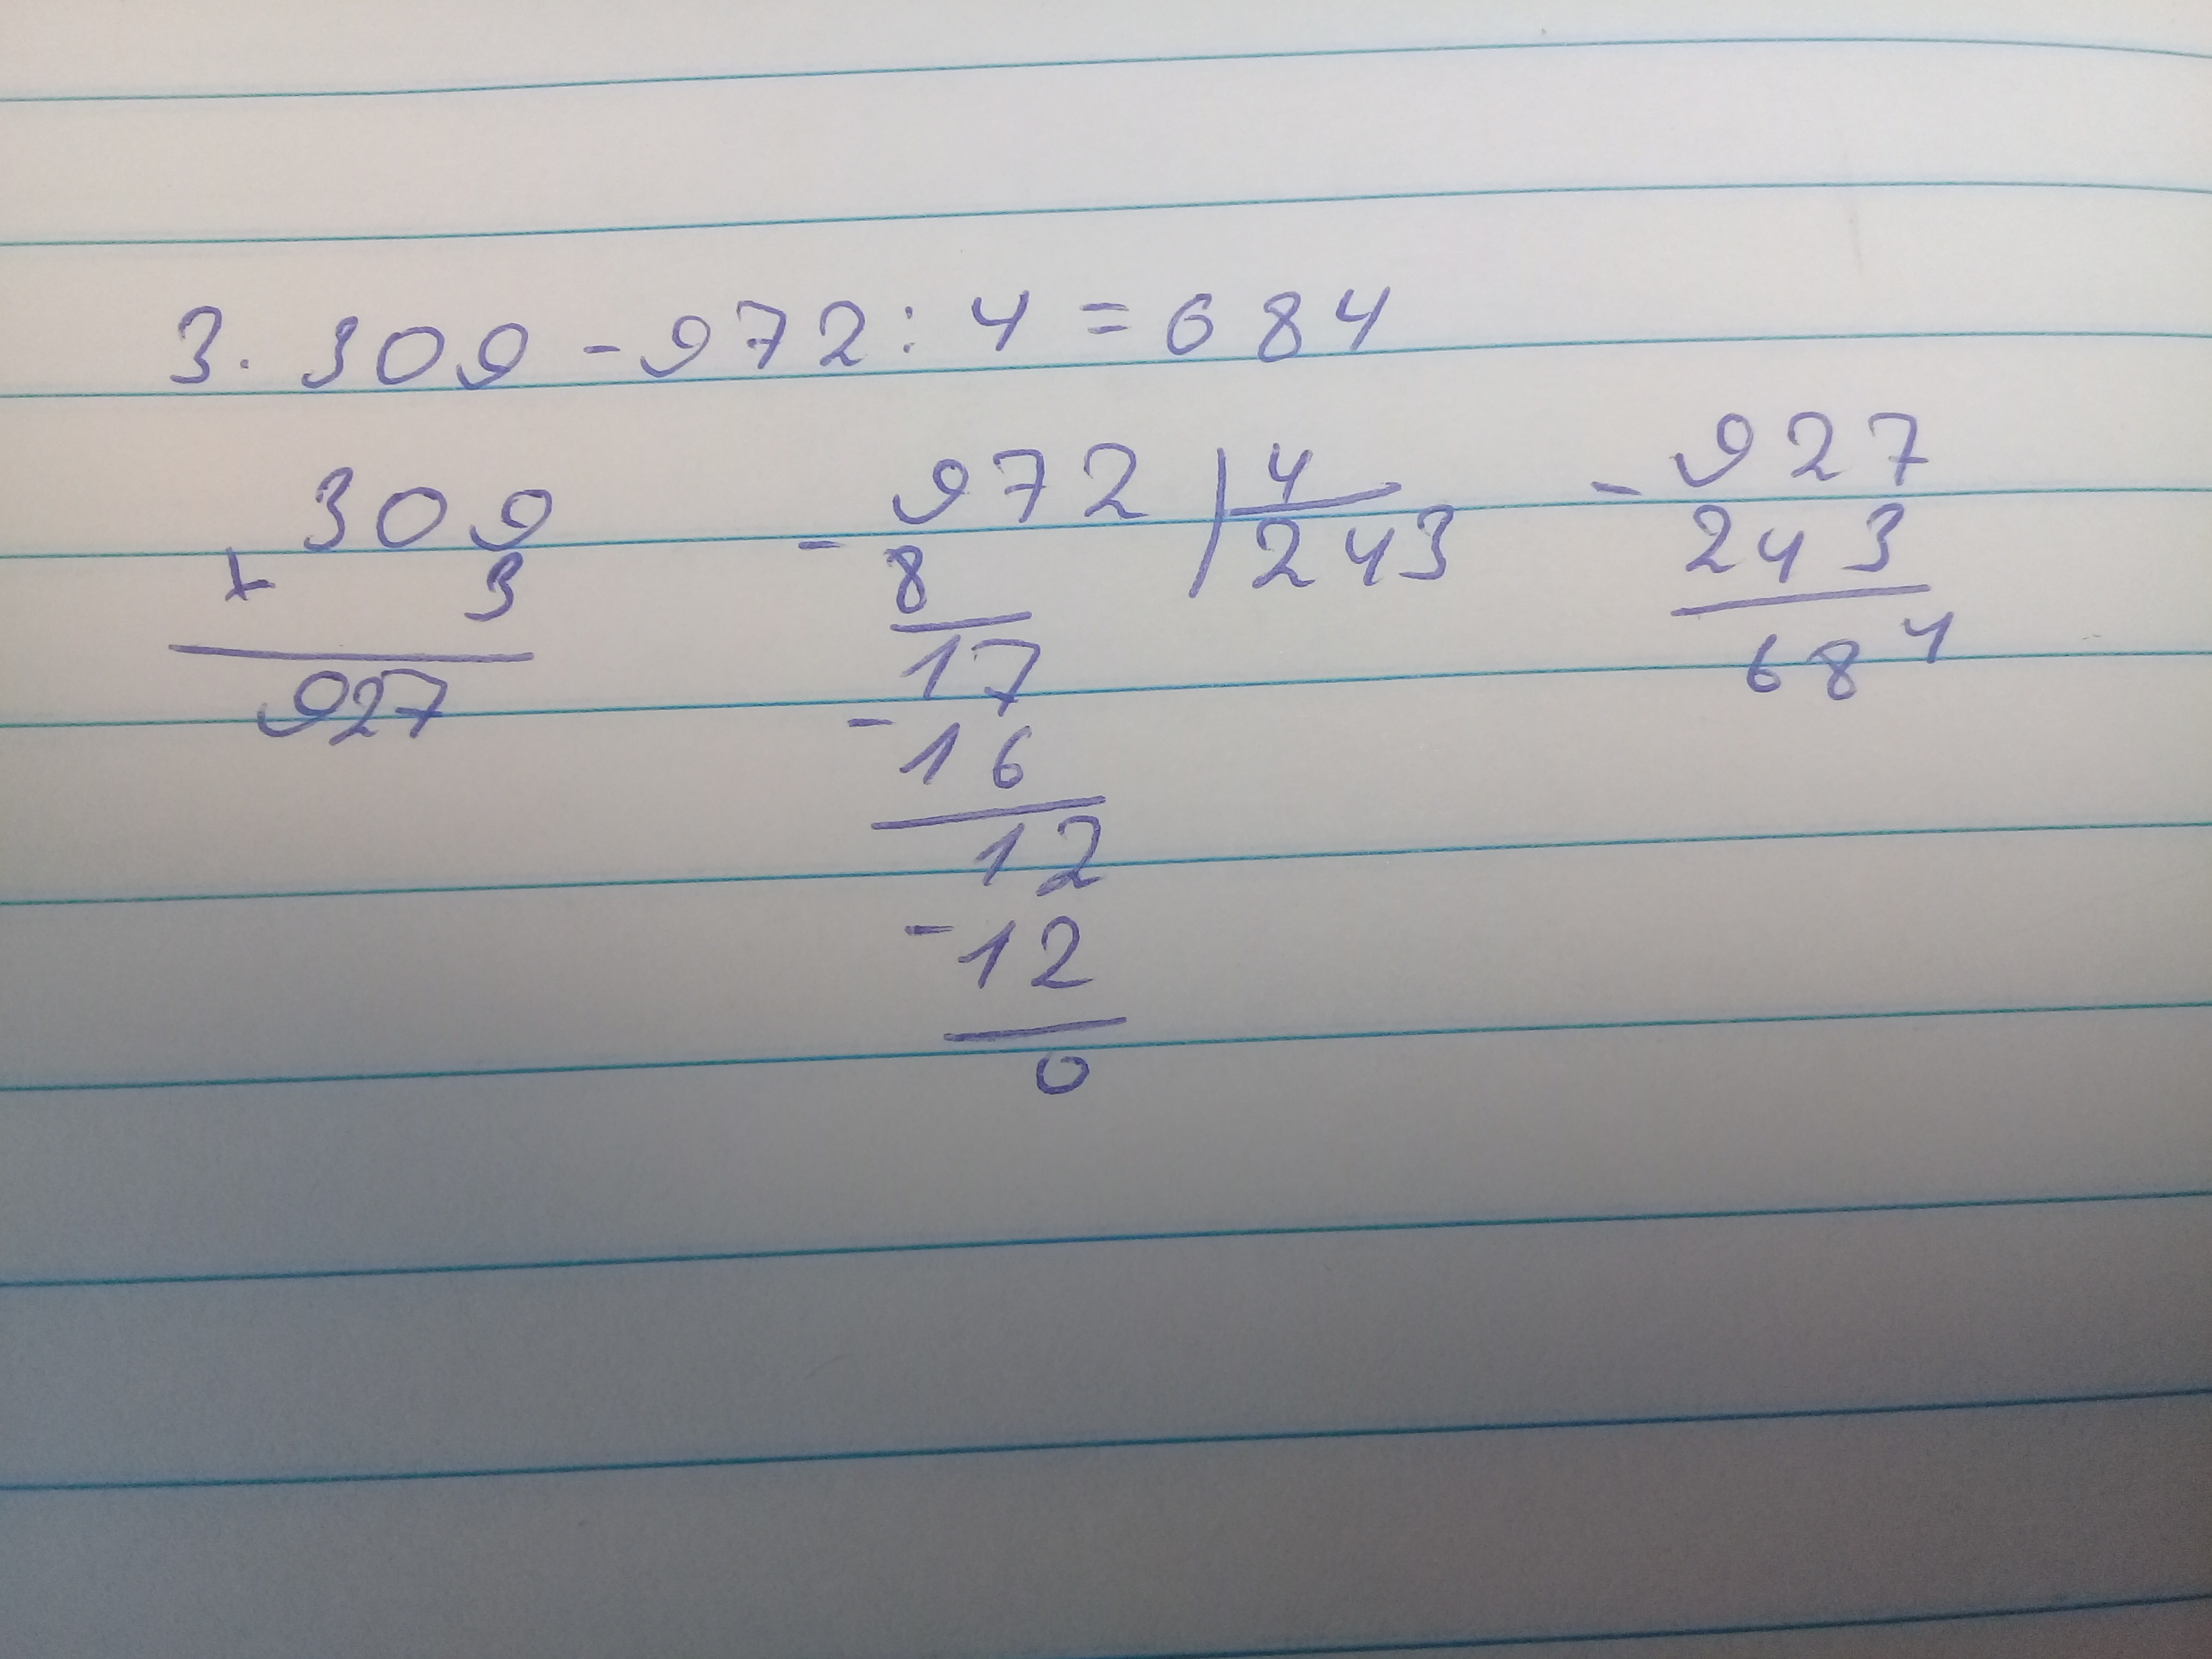 3 · 309 - 972 : 4 = 684
309
x 3
927
972 | 4
- 8 243
17
- 16
12
- 12
0
- 927
243
684